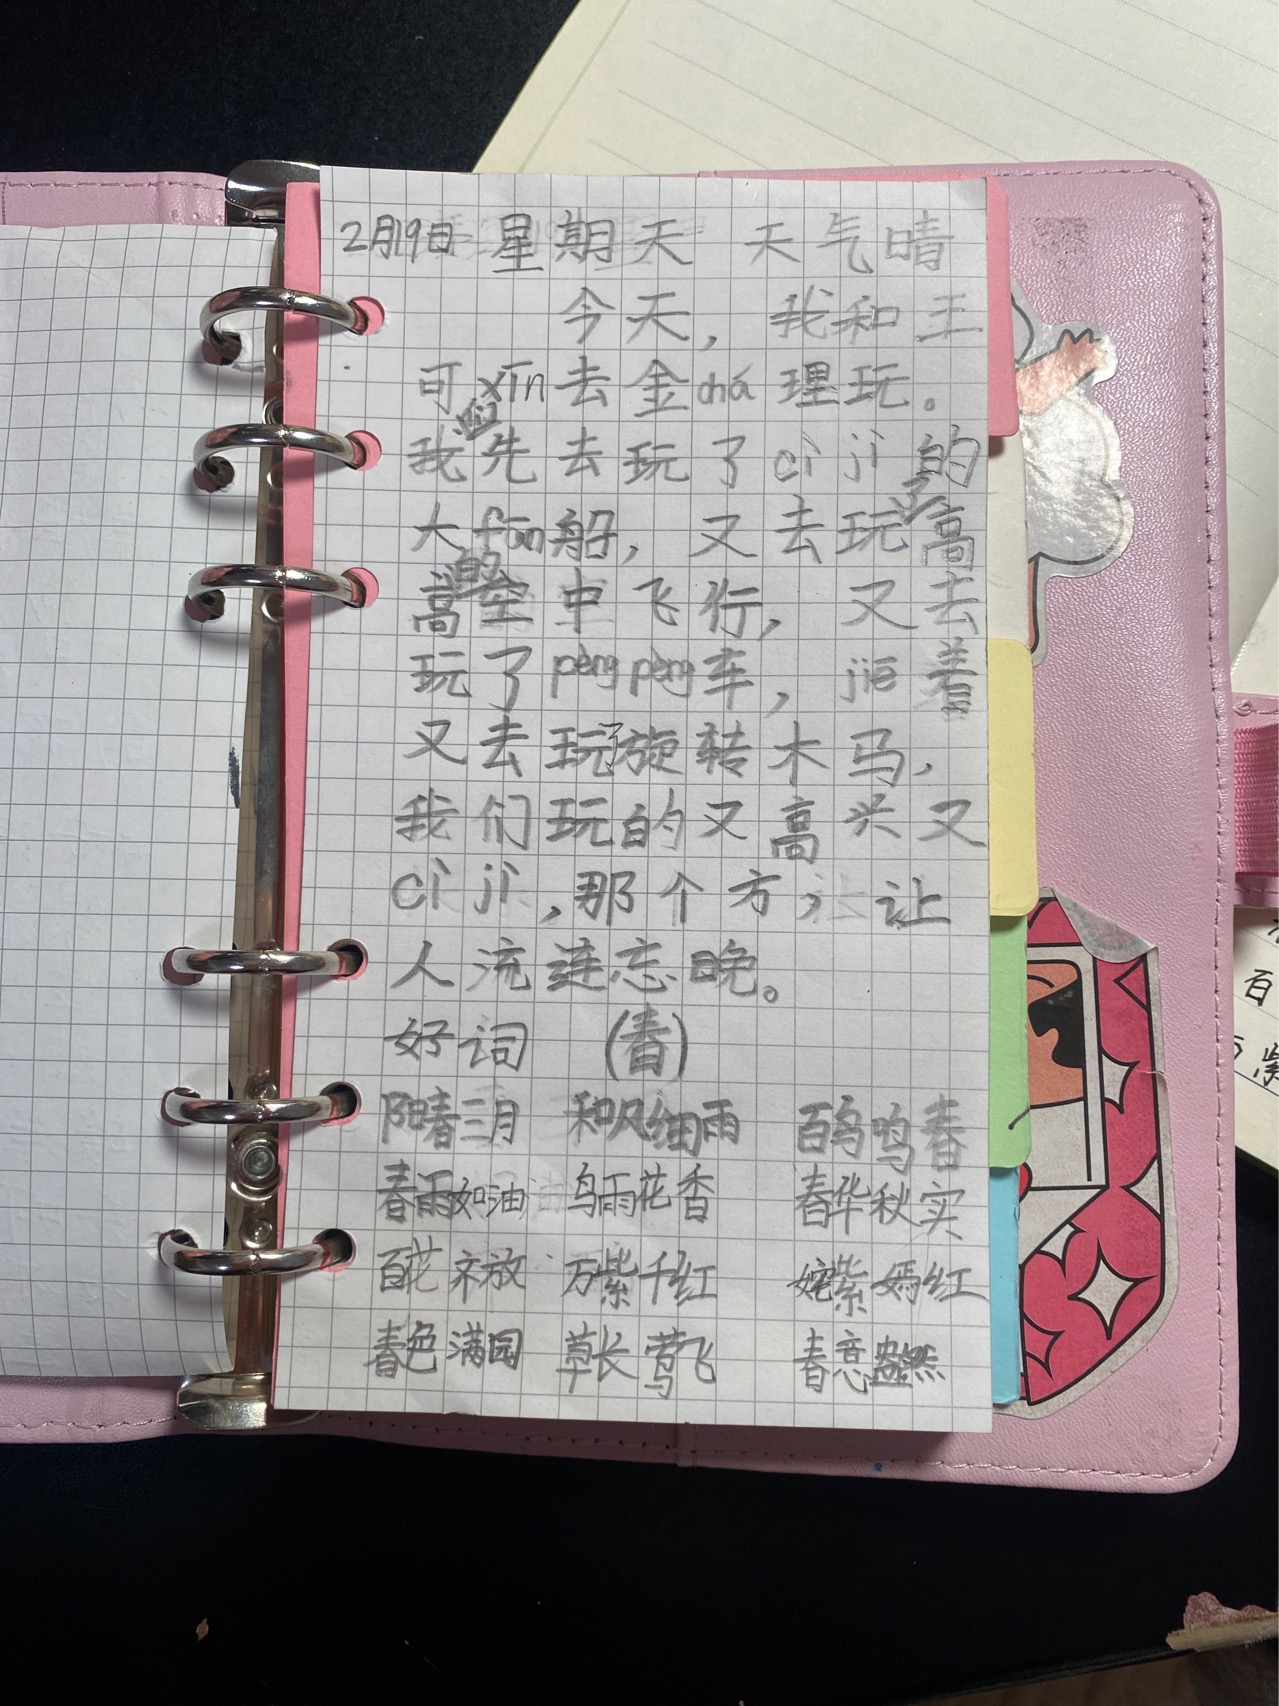 2月19日 星期天 天气晴
今天，我和王
可xīn去金chá理玩。
我们先去玩了cì jì的
大fān船，又去玩了高
高的空中飞行，又去
玩了pèngpèng车，jiē着
又去玩了旋转木马，
我们玩的又高兴又
cì jì，那个方，让
人流连忘晚。
好词 （春）
阳春三月 和风细雨 百鸟鸣春
春雨如油 鸟雨花香 春华秋实
百花齐放 万紫千红 姹紫嫣红
春色满园 草长莺飞 春意盎然
百